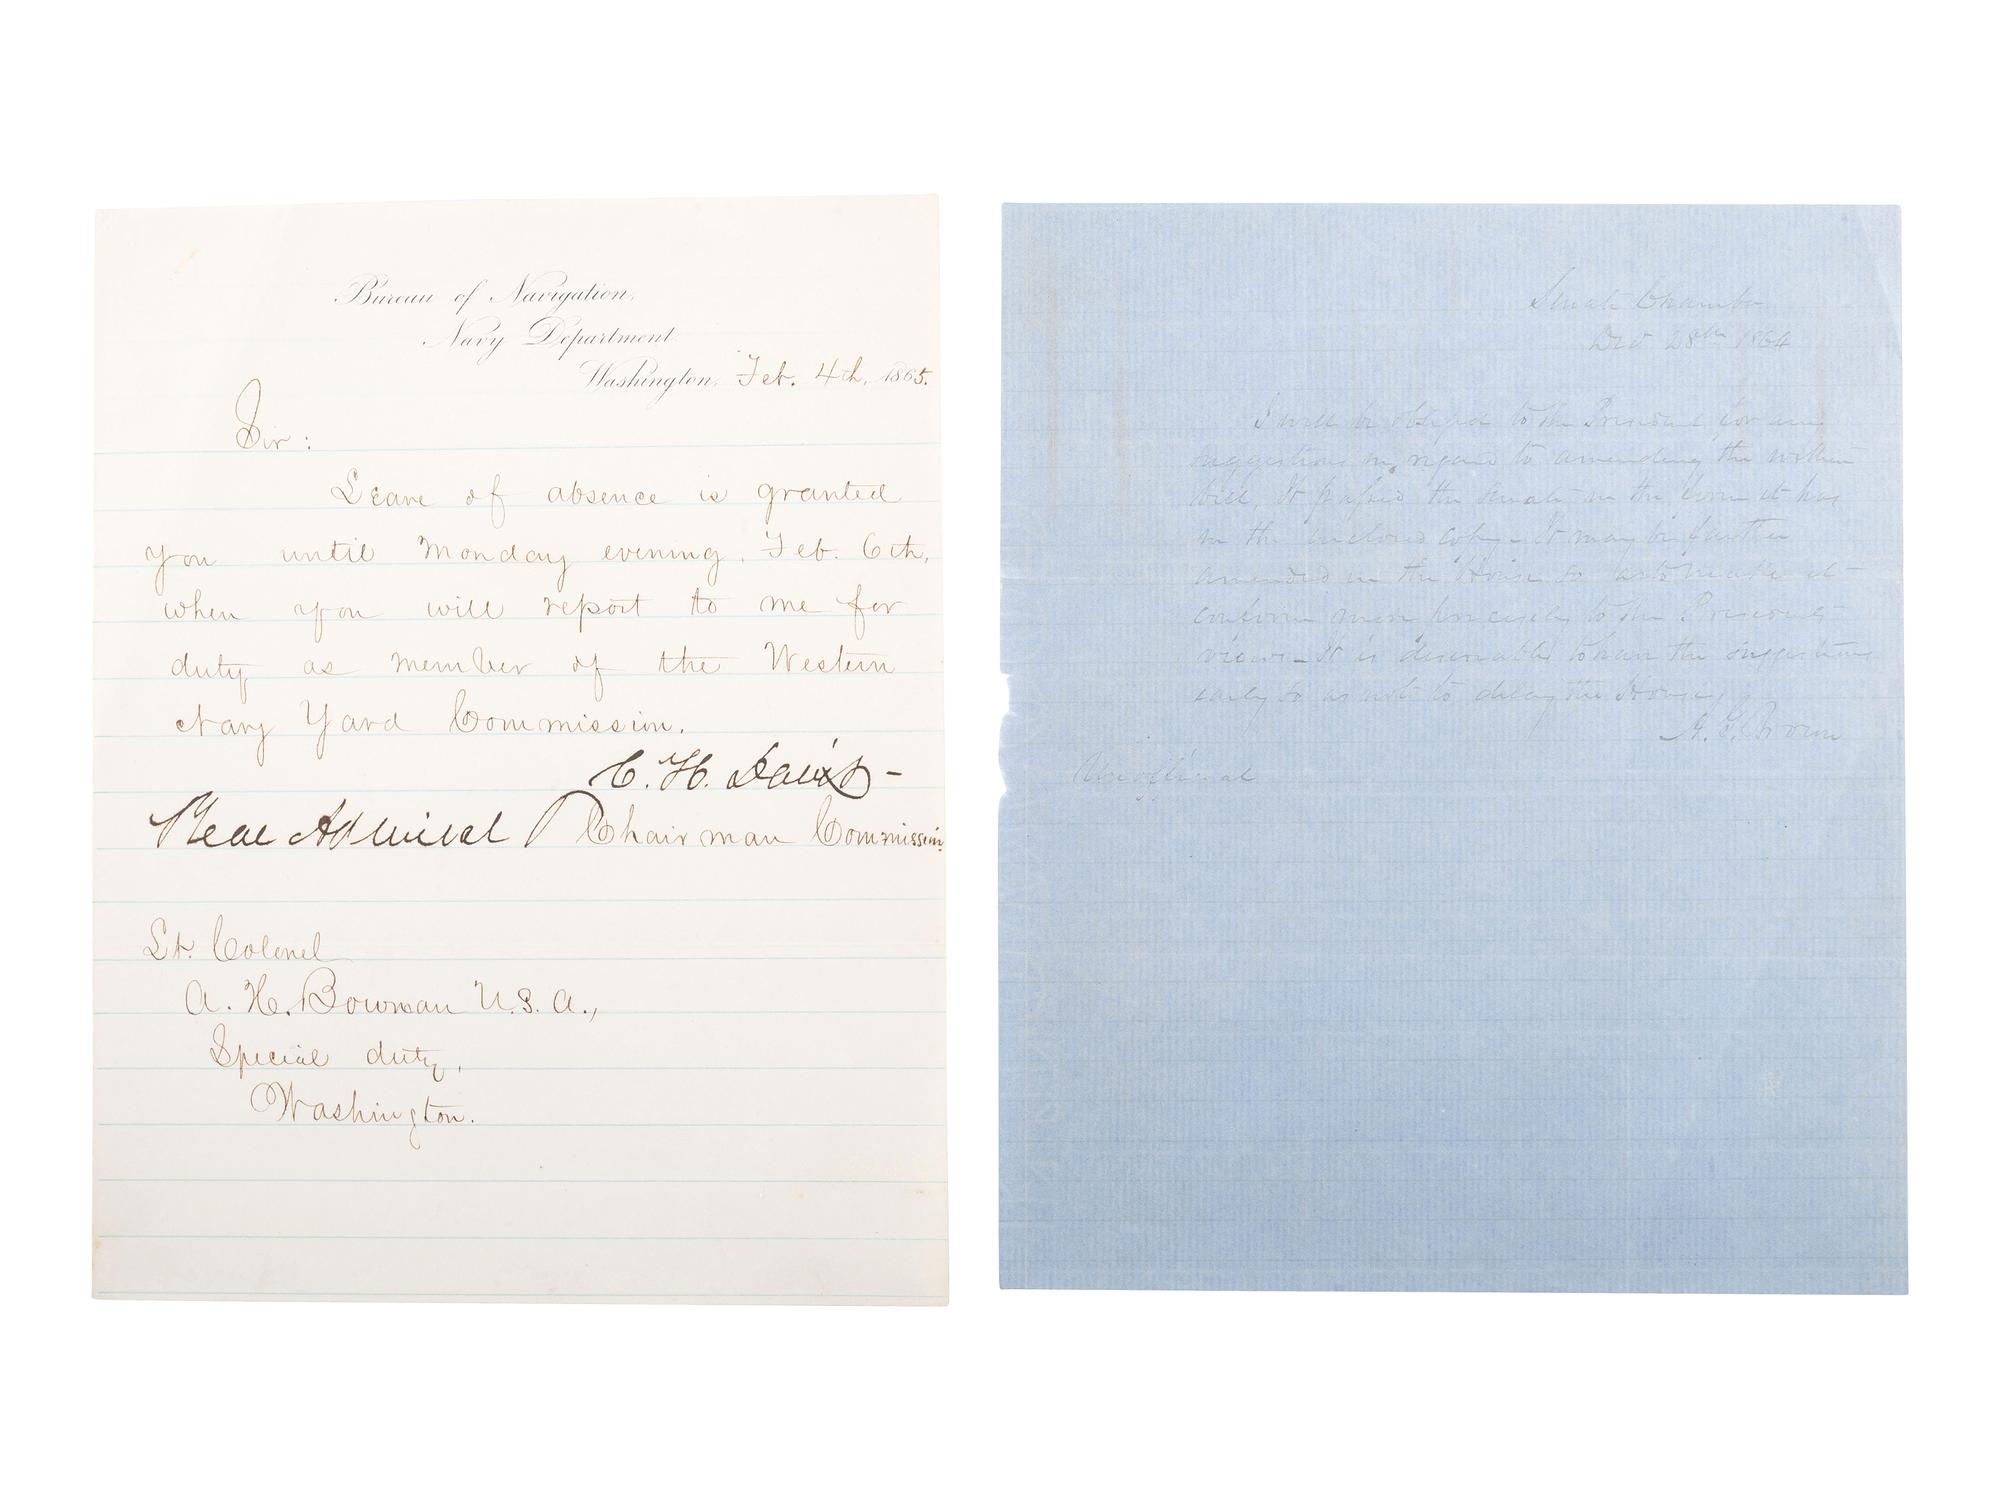 Bureau of Navigation,
Navy Department
Washington, Feb. 4th, 1865.
Sir:
Leave of absence is granted
you until Monday evening, Feb. 6th,
when you will report to me for
duty as member of the Western
Navy Yard Commission.
C. H. Davis -
Rear Admiral Chairman Commission.
Lt. Colonel
A. H. Bowman U.S.A.,
Special duty,
Washington.
Senate Chamber
Dec 28th 1864
I will be obliged to the President for any
suggestions in regard to amending the within
bill. It passed the Senate in the form it has
in the enclosed copy - It may be further
amended in the House so as to make it
conform more precisely to the Presidents
views - It is desirable to have the suggestions
early so as not to delay the House
A. G. Brown
Unofficial